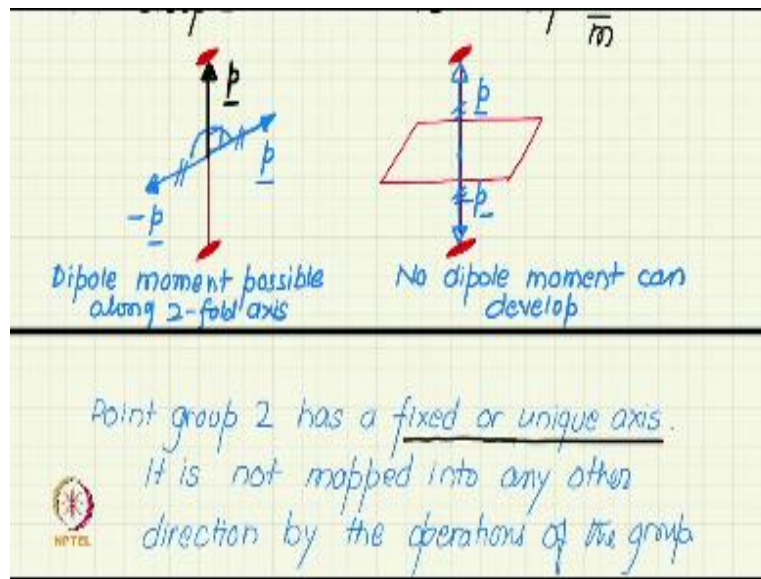 m
p
p
p
-p
-p
Dipole moment possible
along 2-fold axis
No dipole moment can
develop
Point group 2 has a fixed or unique axis.
It is not mapped into any other
direction by the operations of the group
NPTEL